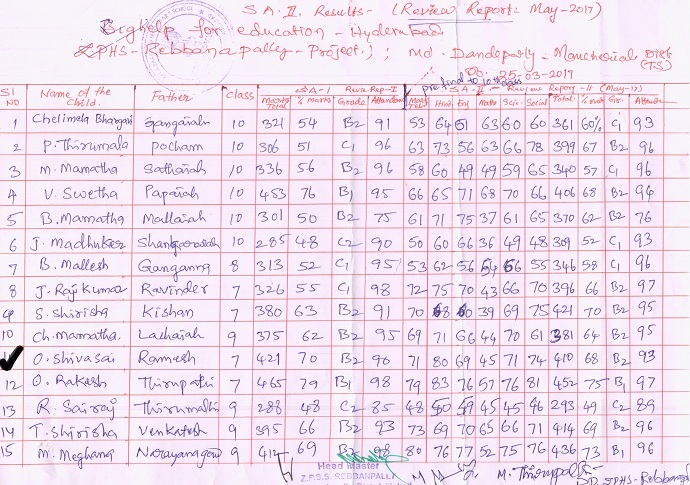 S.A.II. Results - (Review Report: May-2017)
Bighelp for education - Hyderabad
ZPHS-Rebbanapally-Project.); Md. Dandepally - Mancherial Dist (TS)
Dt. 25-03-2017
SA-I Reve Rep-I pre final to 10th class SA-II- Review Report-II (May-17)
Sl NO Name of the Child. Father Class Marks Total % Marks Grade Attendance Tel Hindi Eng Maths Scie. Social Total % Mark Gr. Attend
1 Chelimela Bhargavi Gangaiah 10 321 54 B2 91 53 64 51 63 60 60 361 60% C1 93
2 P. Thirumala Pocham 10 306 51 C1 96 63 73 56 63 66 78 399 67 B2 96
3 M. Mamatha Sathaiah 10 336 56 B2 96 58 60 49 49 59 65 340 57 C1 96
4 V. Swetha Papaiah 10 453 76 B1 95 66 65 71 68 70 66 406 68 B2 94
5 B. Mamatha Mallaiah 10 301 50 B2 75 61 71 75 37 61 65 370 62 B2 76
6 J. Madhuker 10 285 48 C2 90 50 60 66 36 49 48 309 52 C1 93
7 B. Mallesh Ganganna 8 313 52 C1 95 53 62 56 54 66 55 346 58 C1 96
8 J. Raj Kumar Ravinder 7 326 55 C1 98 72 75 70 43 66 70 396 66 B2 97
9 S. Shirisha Kishan 7 380 63 B2 91 70 68 60 39 69 75 421 70 B2 95
10 Ch. Mamatha Lachaiah 9 375 62 B2 95 69 71 66 44 70 61 381 64 B2 95
O. Shivasai Ramesh 7 421 70 B2 90 71 80 69 45 71 74 410 68 B2 93
12 O. Rakesh Thirupathi 7 465 79 B1 98 79 83 76 57 76 81 452 75 B1 97
13 R. Sairaj Thirumathi 9 288 48 C2 85 48 60 49 45 45 46 293 49 C2 89
14 T. Shirisha Venkatesh 9 395 66 B2 93 73 69 70 65 66 71 414 69 B2 96
15 M. Meghana Narayanagow 9 412 69 B2 98 80 76 77 52 75 76 436 73 B1 96
Head Master
Z.P.S.S. REBBANPALLY
M. Thirupathi
ZPHS-Rebbanpa